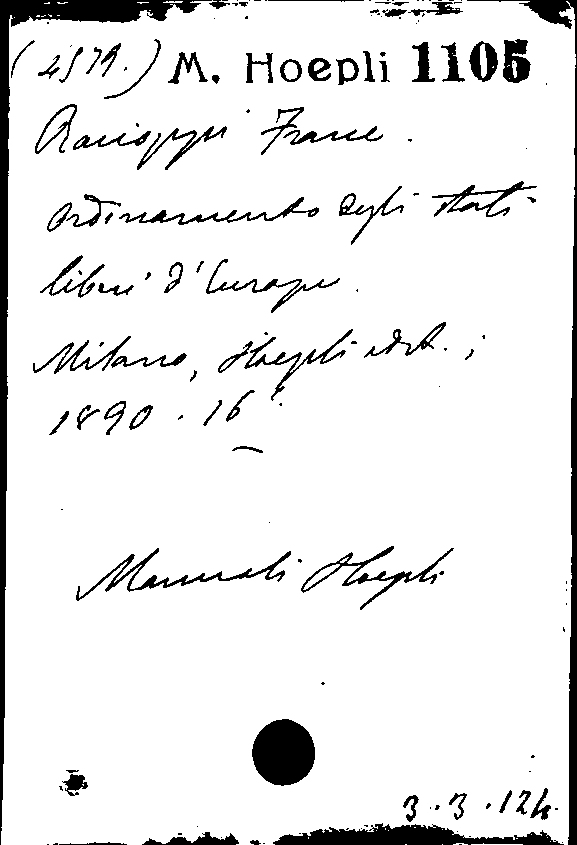 (4579.) M. Hoepli 1105
Racioppi Franc.
Ordinamento degli stati
liberi d'Europa.
Milano, Hoepli edit.;
1890. 16°.
Manuali Hoepli
3.3.124.